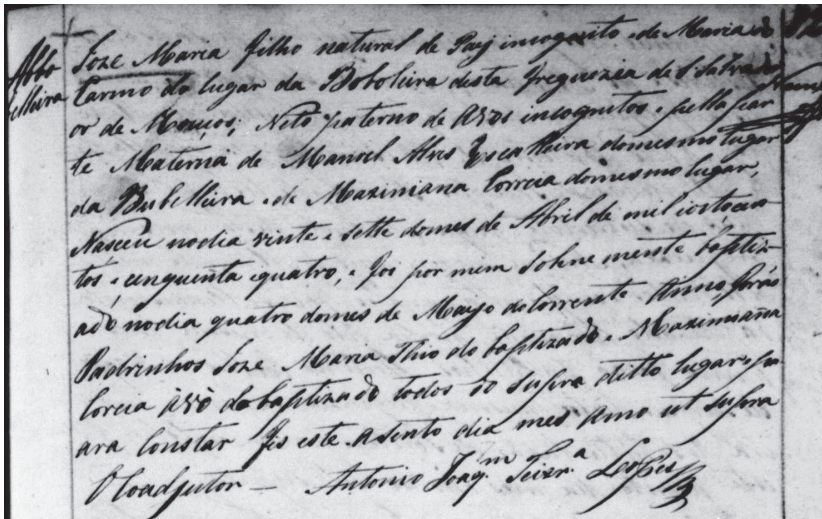 Abbo
belleira
Joze Maria filho natural de Pay incognito e de Maria do
Carmo do lugar da Boboleira desta freguezia de S. Salvad
or de Mouços; Neto paterno de avos incognitos e pella par
te Materna de Manoel Alves Escaleira do mesmo lugar
da Bubelleira e de Maximiana Correia do mesmo lugar,
Nasceu no dia vinte e sette do mes de Abril de mil e oitocen
tos e cenquenta e quatro, e foi por mem Solenemente baptiz
ado no dia quatro do mes de Mayo do Corrente Anno forão
Padrinhos Joze Maria Thio do baptizado e Maximiana
Correia àvò do baptizado todos do supra ditto lugar e p
ara Constar fis este asento dia mes Anno ut supra
O Coadjutor — Antonio Joaqm Teixra Lopes